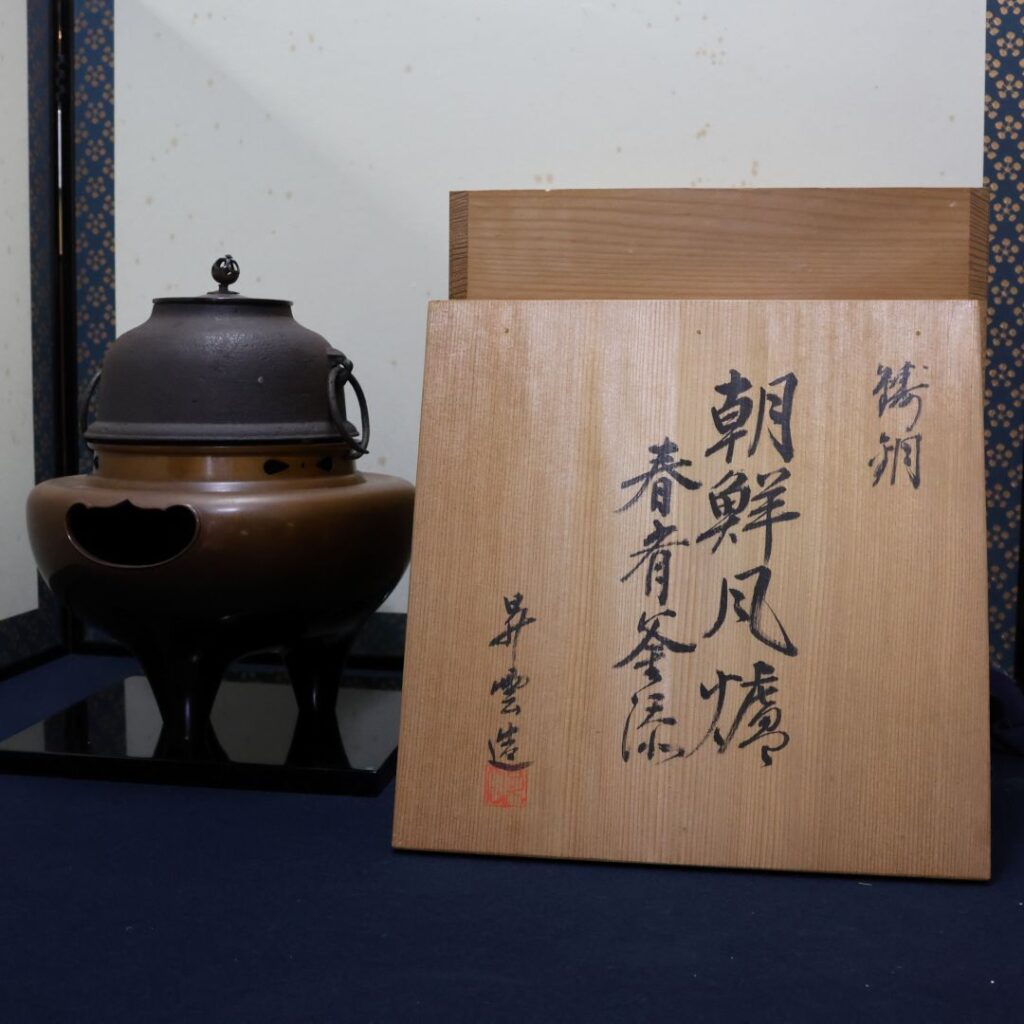 鋳銅
朝鮮風爐
春斉釜添
昇雲造